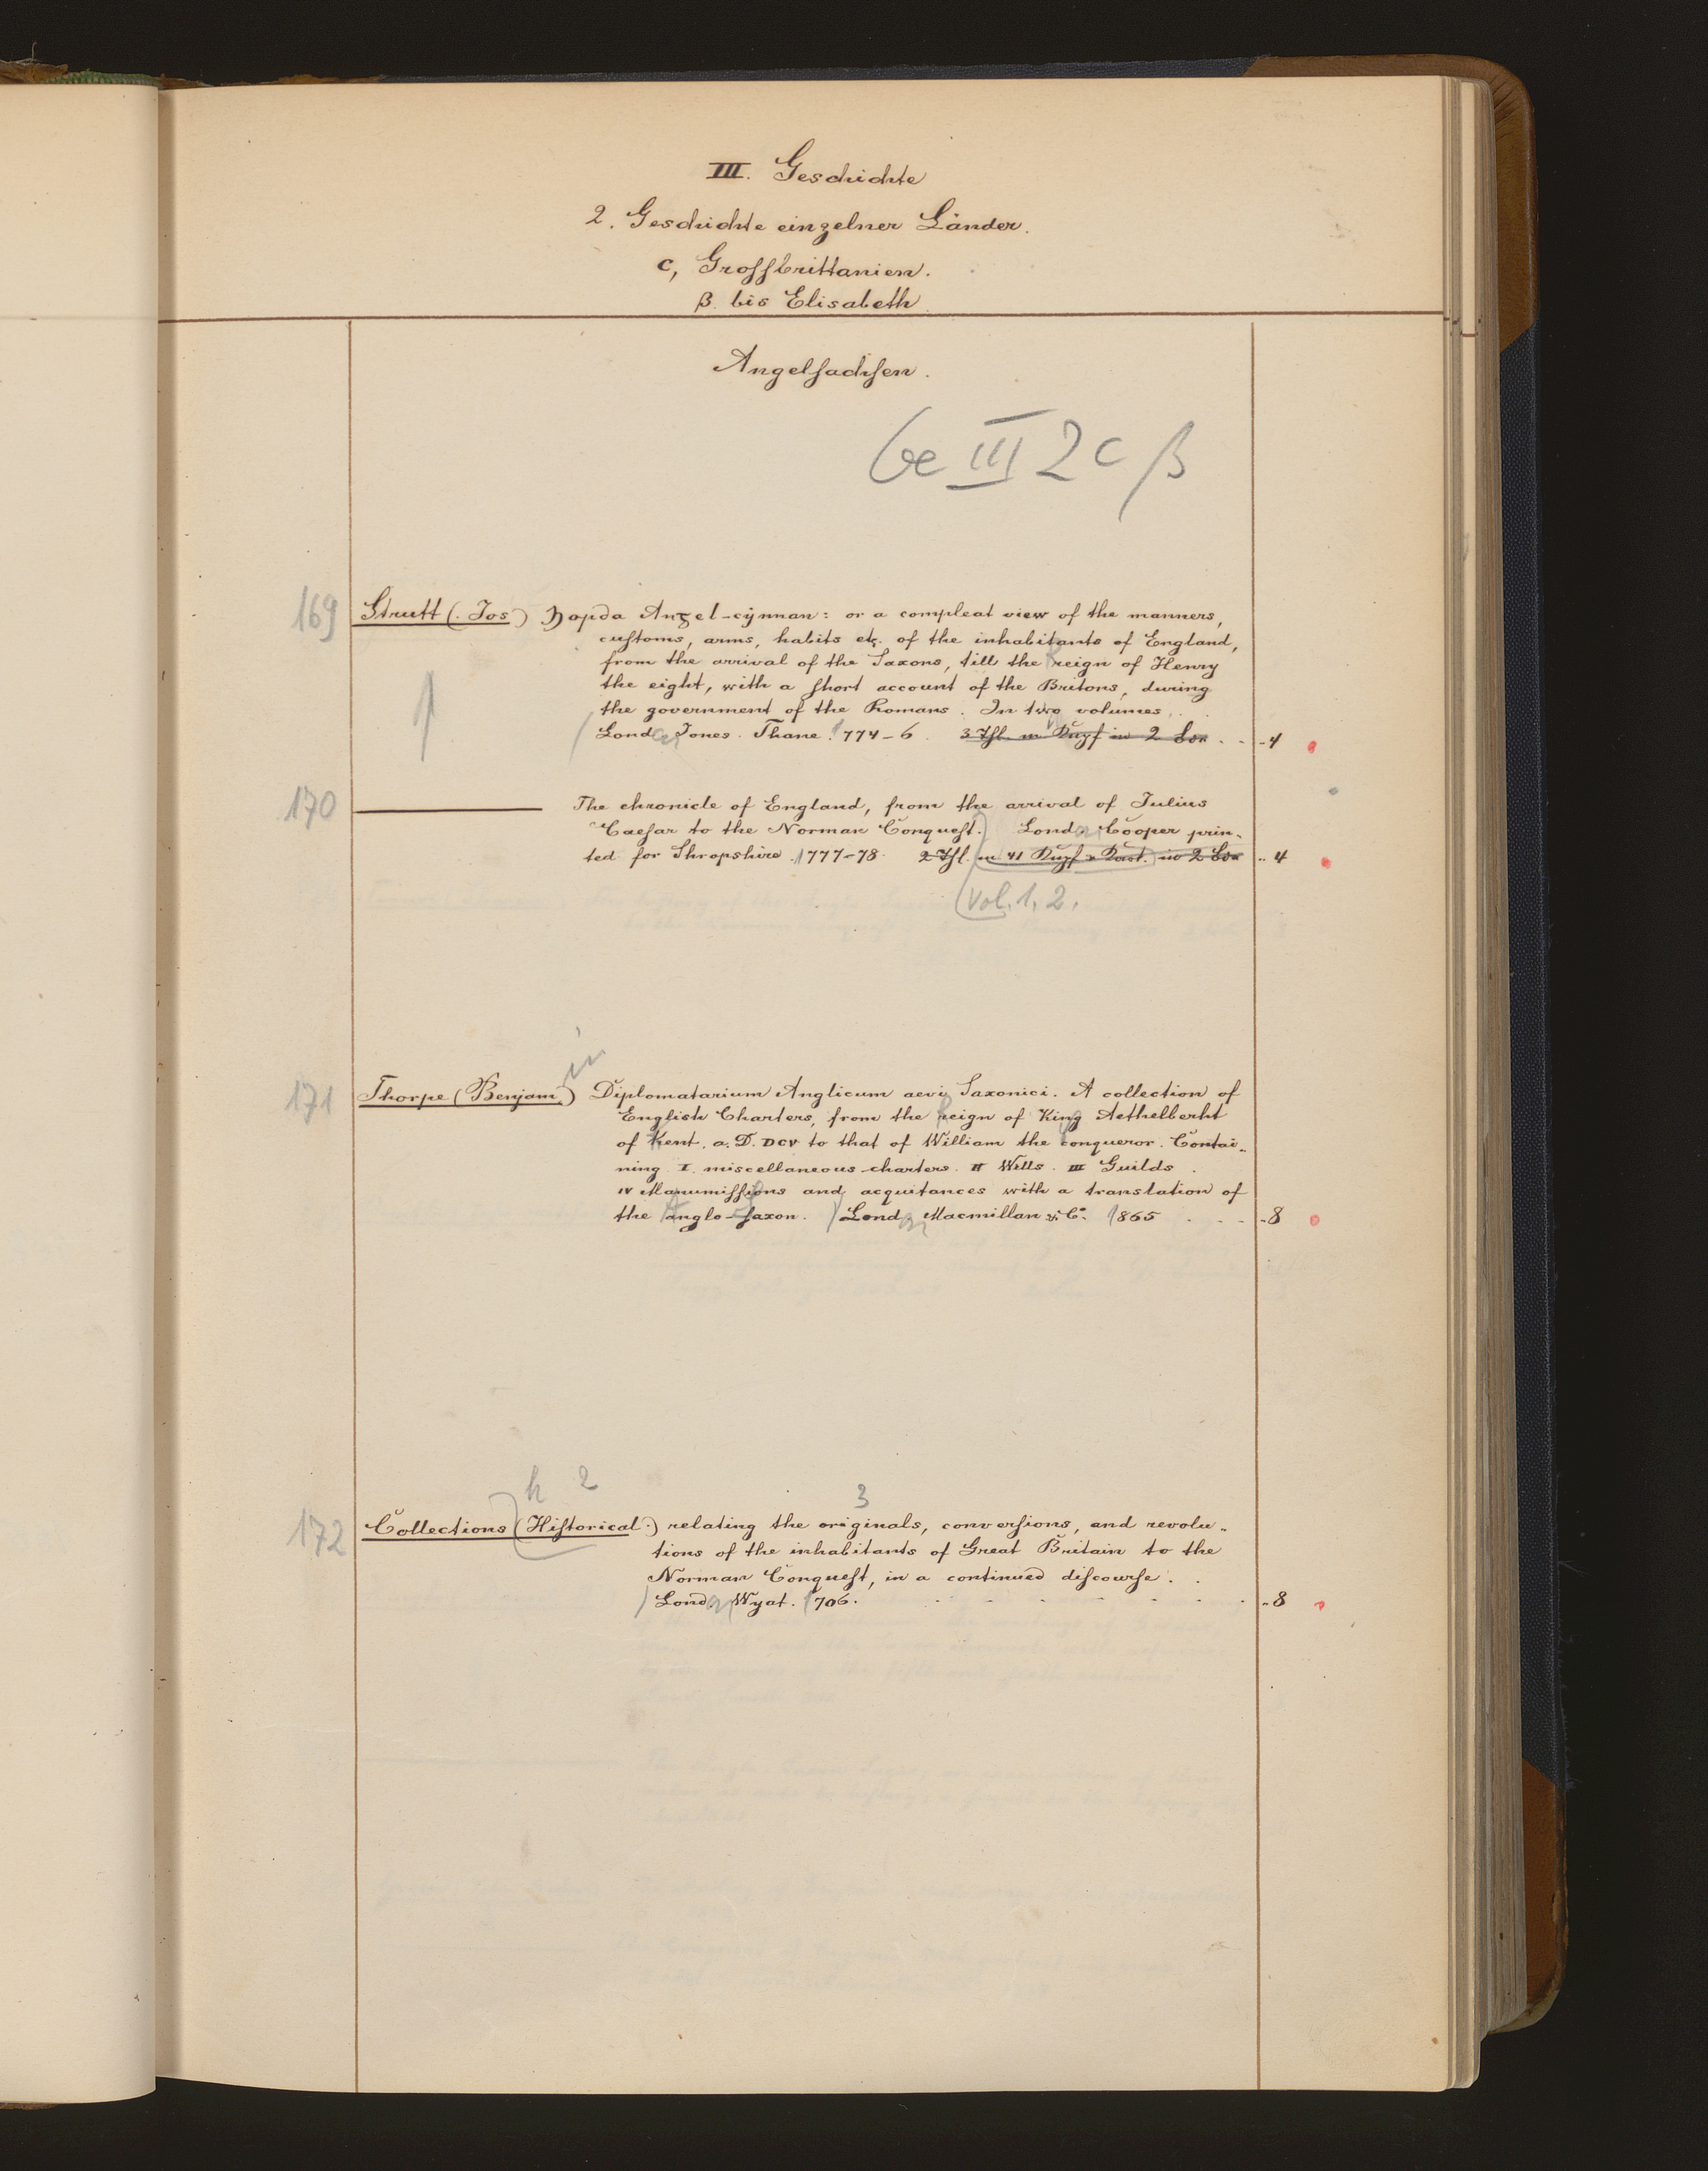 III. Geschichte
2. Geschichte einzelner Länder.
c, Grossbrittanien.
β. bis Elisabeth
Angelsachsen.
Ge III 2 c β
169 Strutt (. Jos ) Ꝧopda Angel-cynnan: or a compleat view of the manners,
customs, arms, habits etc. of the inhabitants of England,
from the arrival of the Saxons, till the reign of Henry
the eight, with a short account of the Britons, during
the government of the Romans. In two volumes.
Lond Jones. Thane. 1774-6. 3 Thl. m Kupf in 2 Bdn - 4
170 ——— The chronicle of England, from the arrival of Julius
Caesar to the Norman Conquest. Lond. Cooper prin-
ted for Shropshire. 1777-78. 2 Thl. m 41 Kupf u Kart. in 2 Bdn - 4
Vol. 1. 2.
in
171 Thorpe (Benjam.) Diplomatarium Anglicum aevi Saxonici. A collection of
English Charters, from the reign of King Aethelberht
of Kent. a. D. DCV to that of William the conqueror. Contai-
ning I. miscellaneous charters. II Wills. III Guilds.
IV Manumissions and acquitances with a translation of
the anglo-saxon. Lond. Macmillan & Co. 1865 - 8
h 2 3
172 Collections (Historical.) relating the originals, conversions, and revolu-
tions of the inhabitants of Great Britain to the
Norman Conquest, in a continued discourse.
Lond. Wyat. 1706. - 8